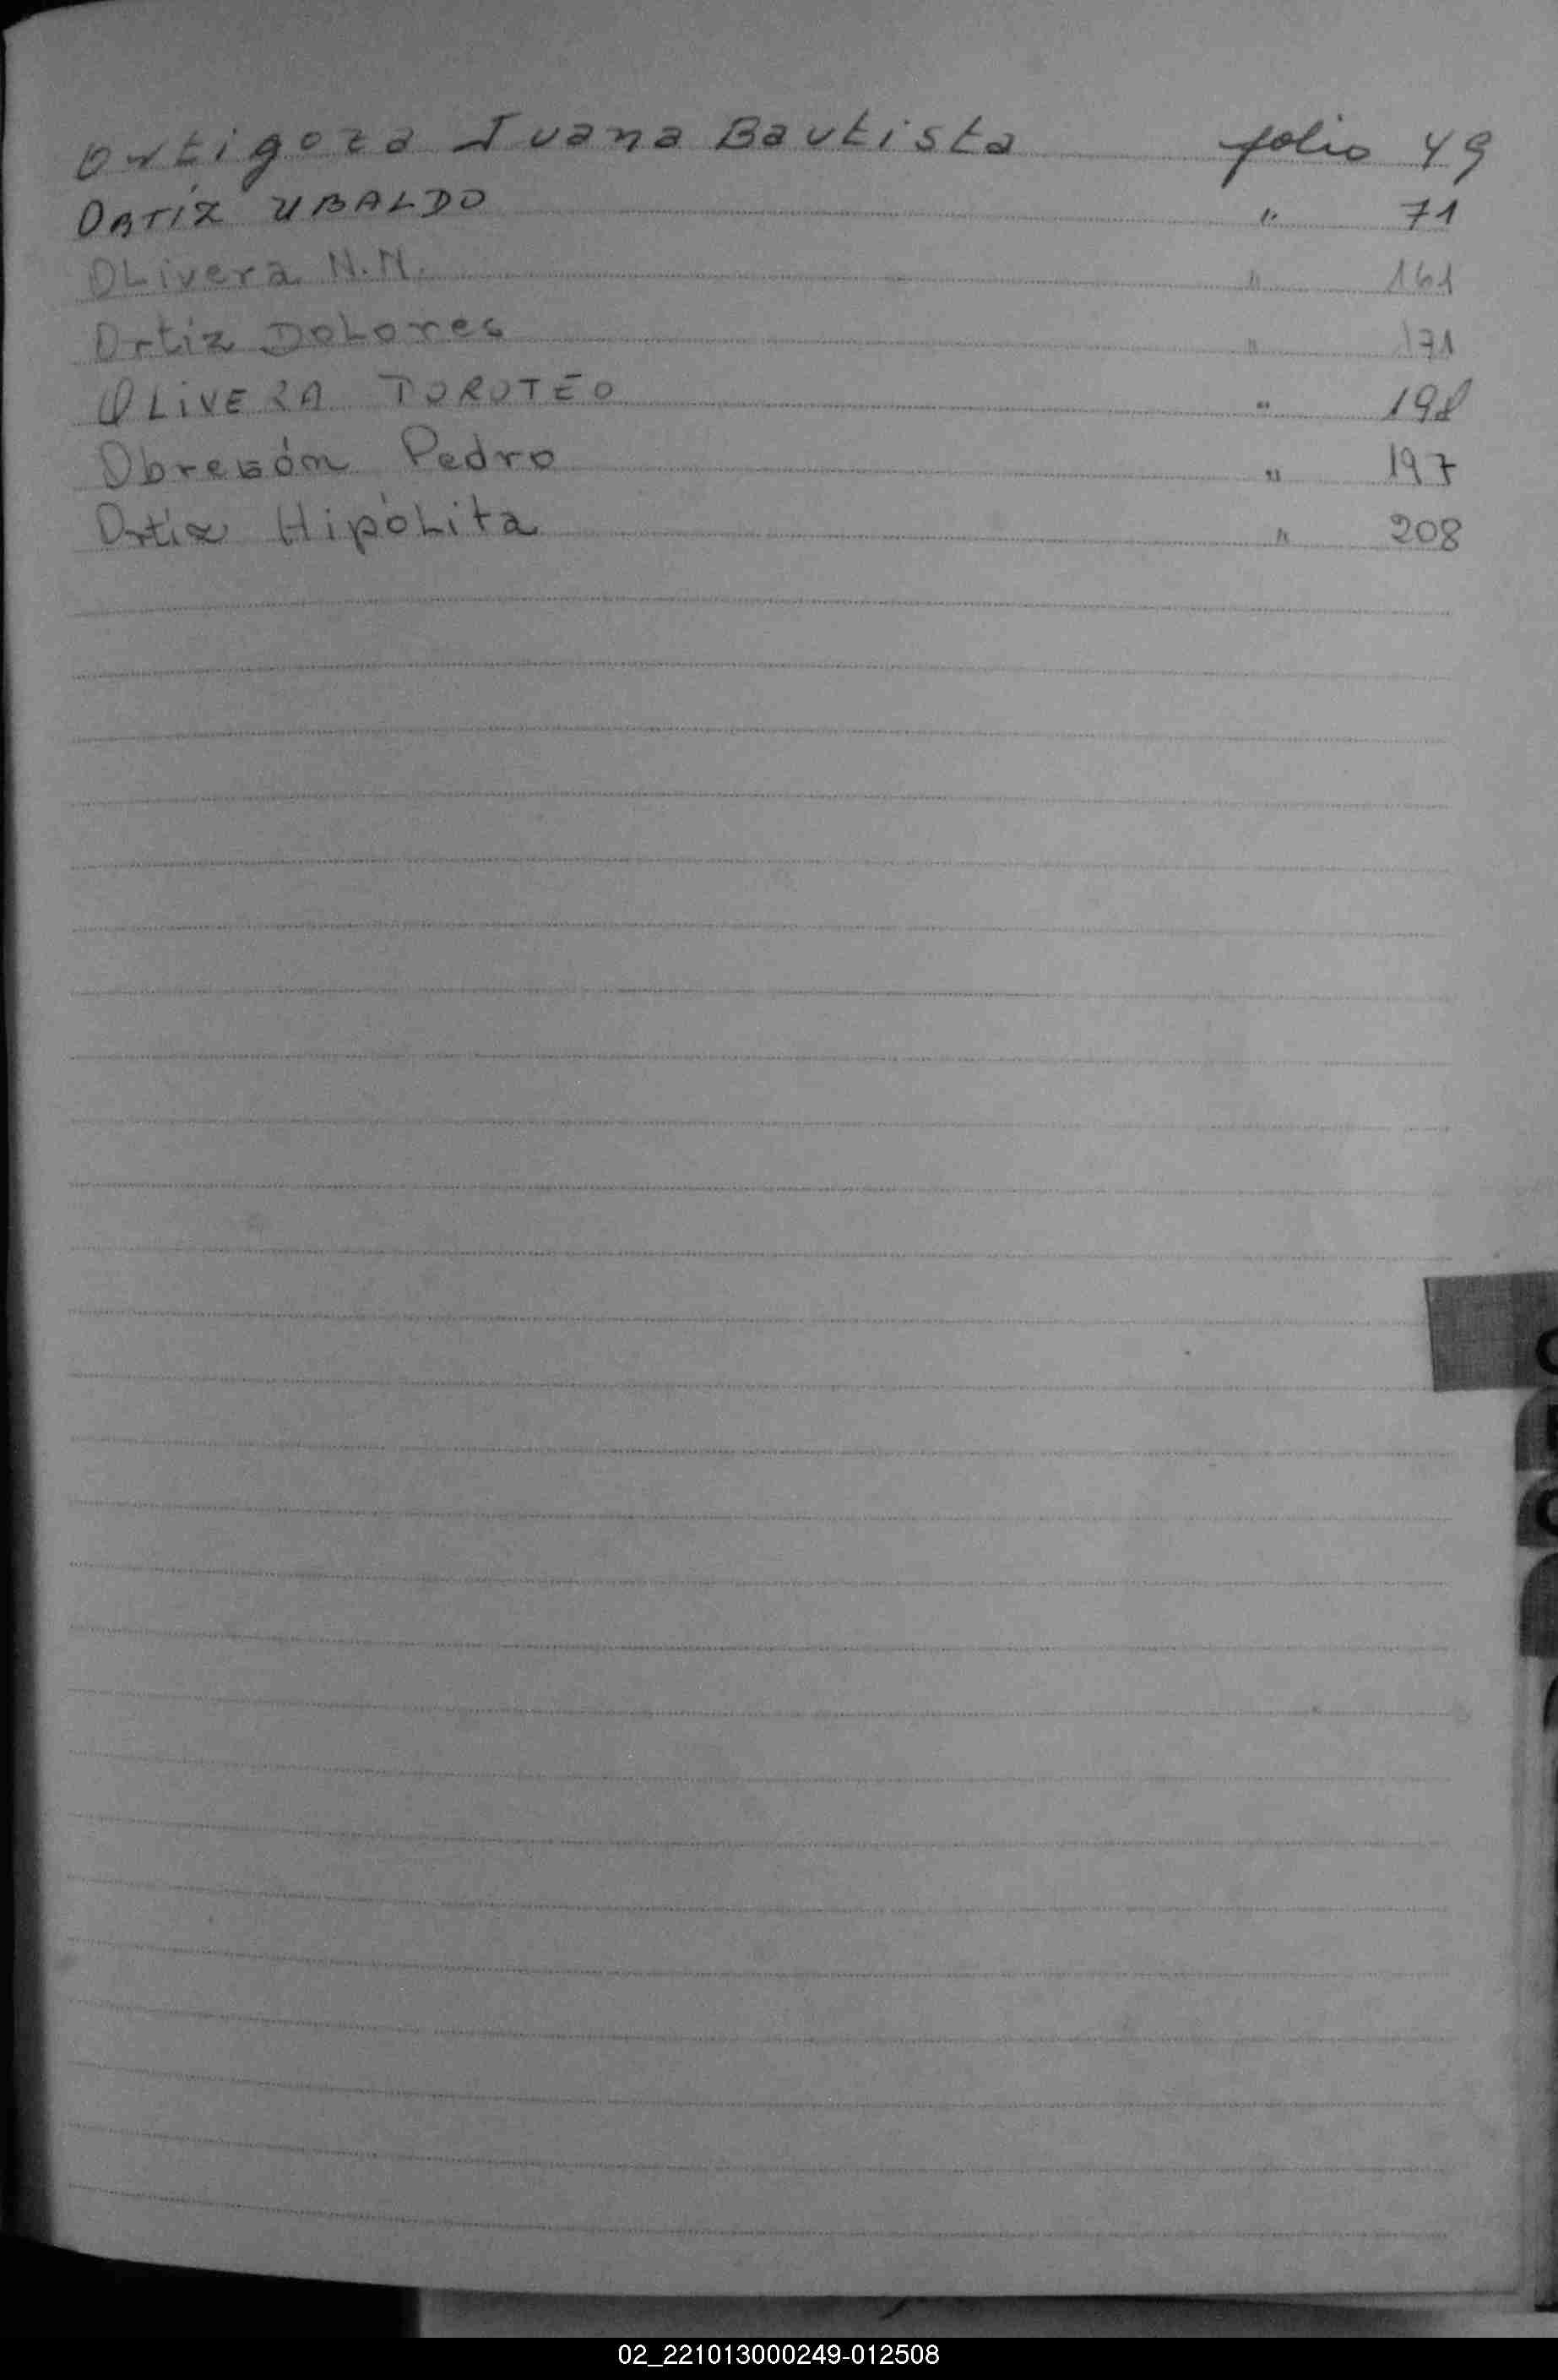 Ortigoza Juana Bautista folio 49
ORTÍZ UBALDO " 71
OLivera N.N. " 161
Ortiz DoLores " 171
OLiVERA DOROTEO " 198
Obregón Pedro " 197
Ortiz HipóLita " 208
02_221013000249-012508